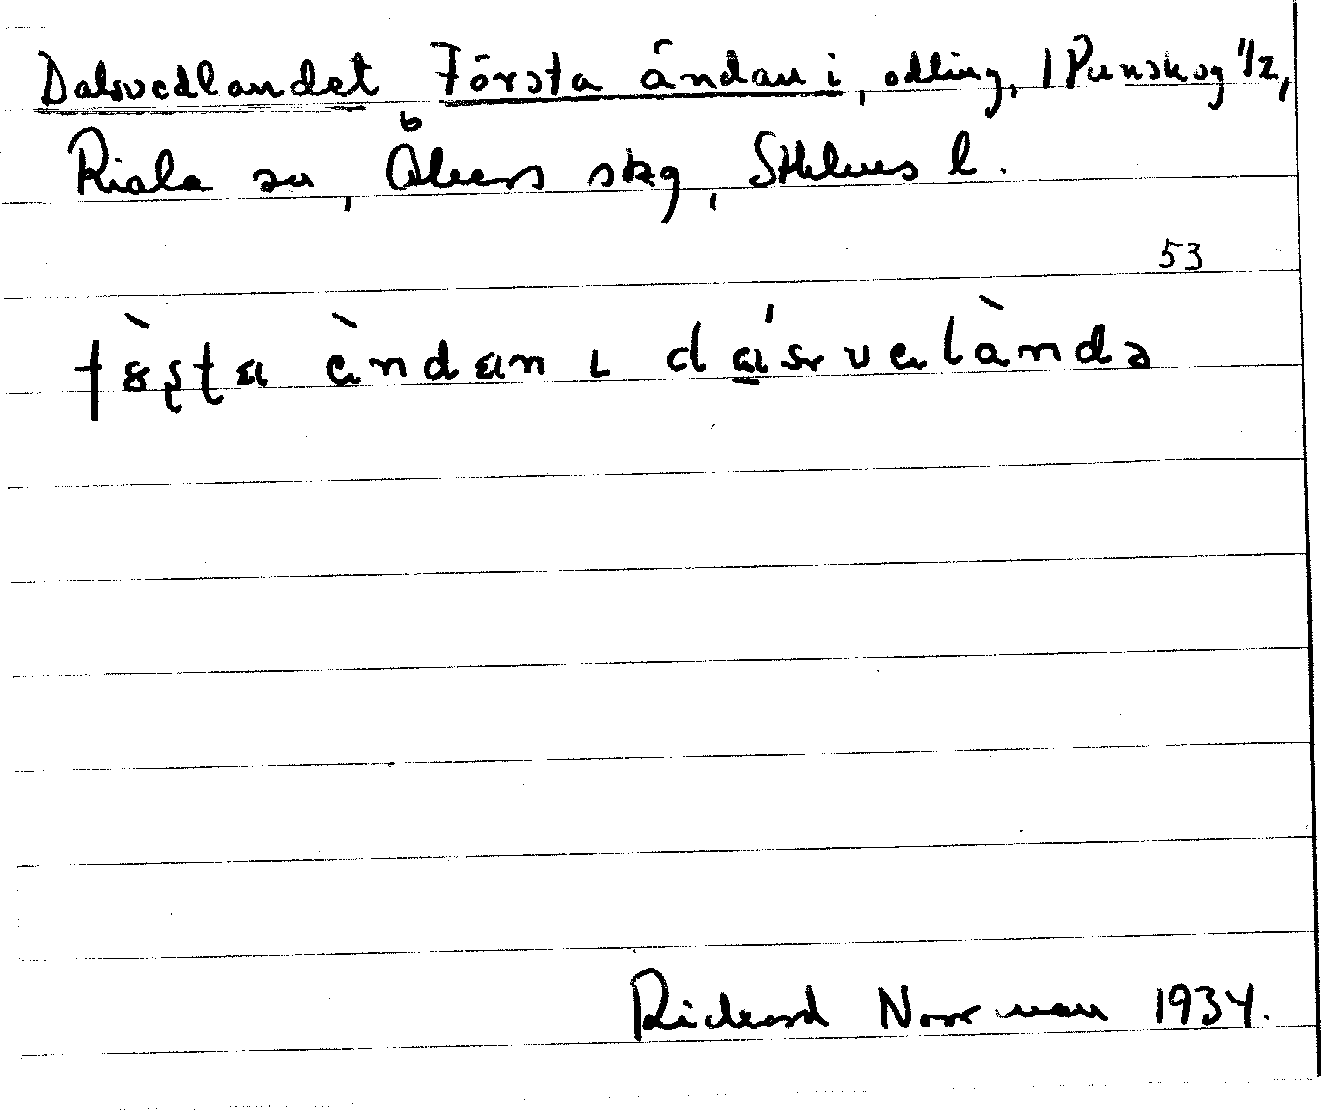 Dalsvedlandet Första ändan i, odling, 1 Punskog 1/2,
Riala sn, Åkers skg, Sthlms l.
53
fàʂʈa àndan ɩ dásvalàndə
Rickard Norrman 1934.